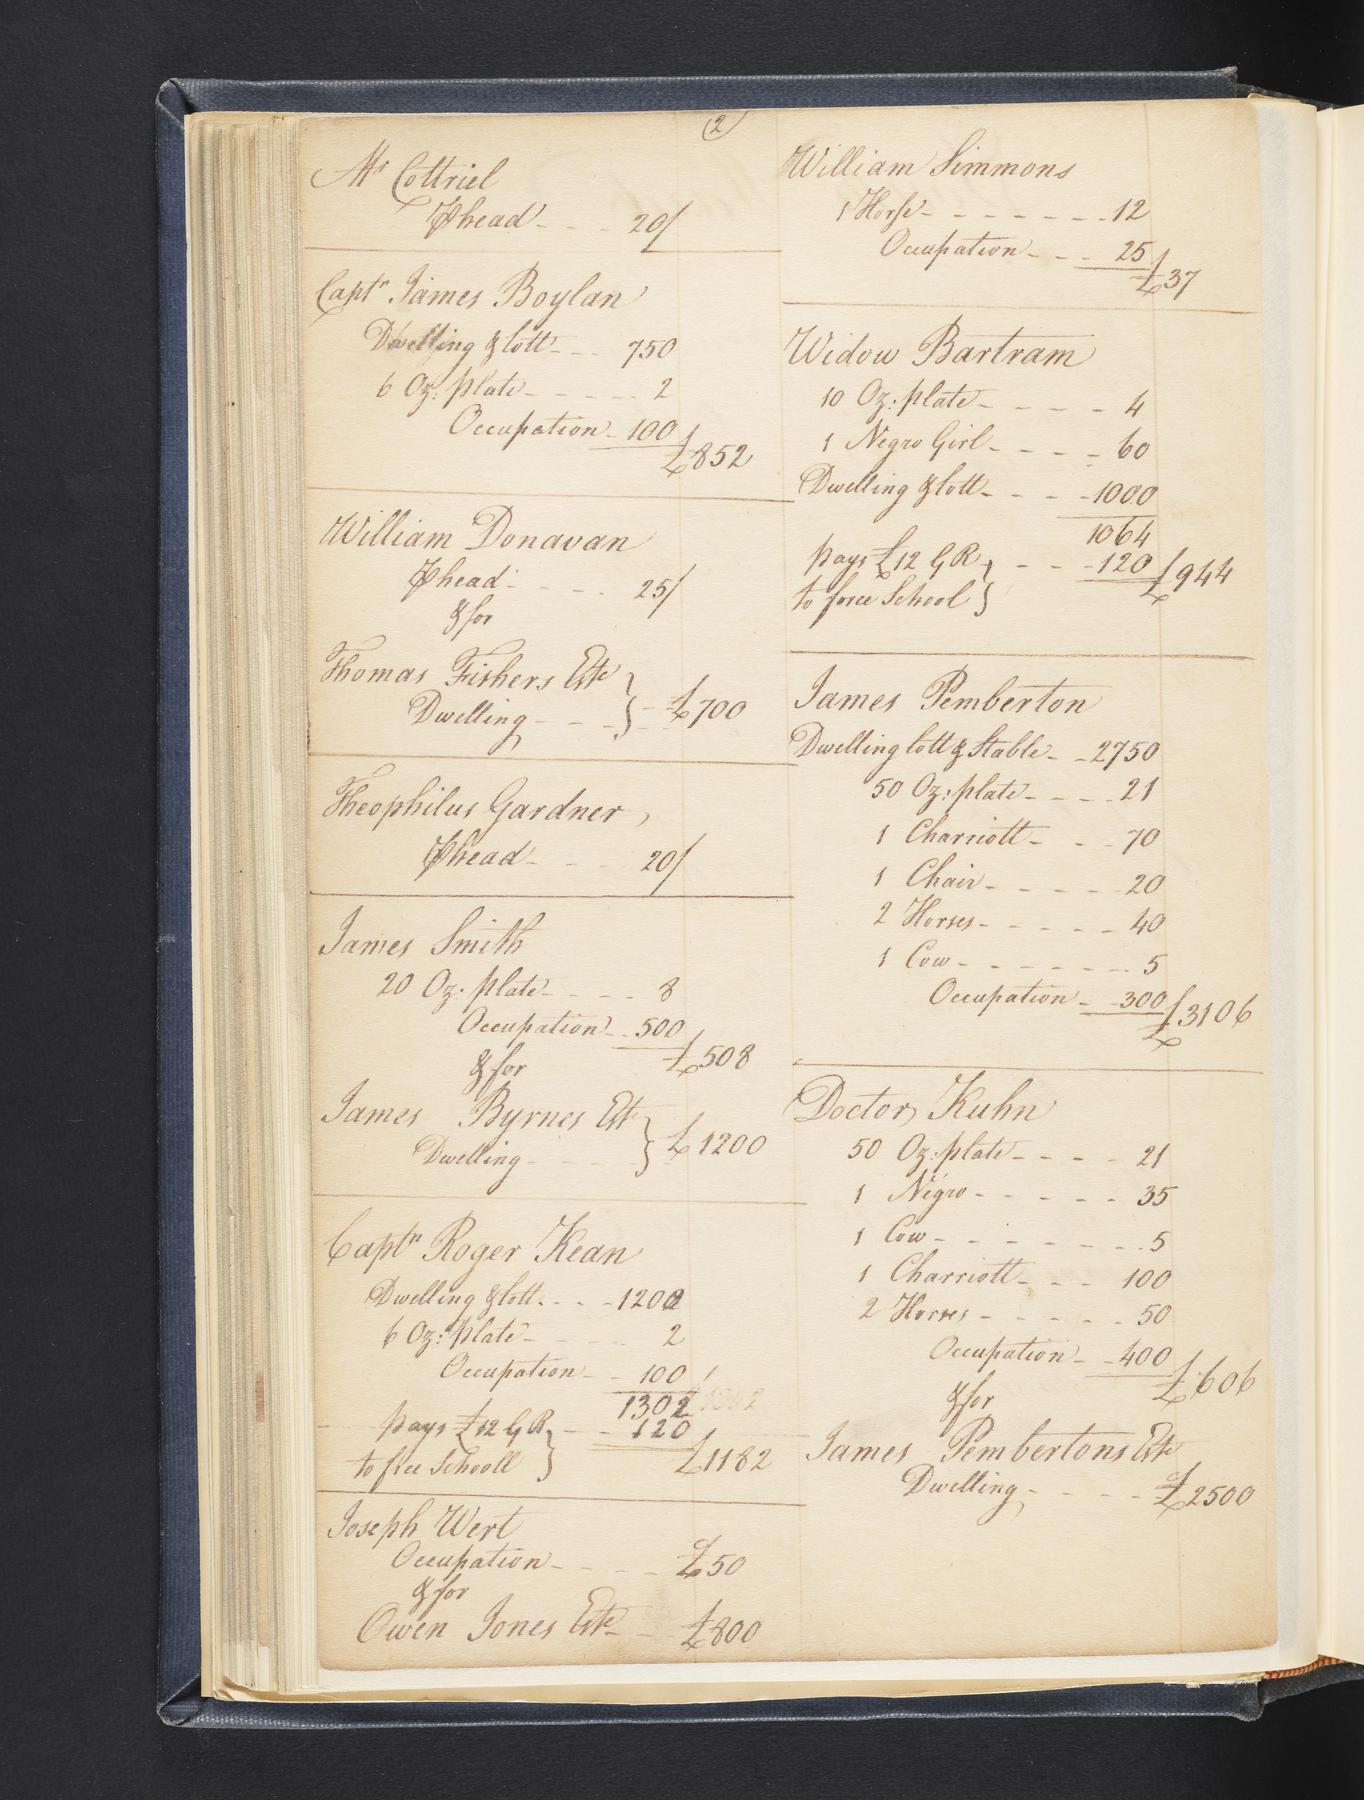 2
Mr Cottriel
⅌ head - - - 20/
Captn James Boylan
Dwelling & lott - - - 750
6 Oz: plate - - - - - 2
Occupation - 100
£852
William Donavan
⅌ head - - - - 25/
& for
Thomas Fishers Este
Dwelling - - - £700
Theophilus Gardner
⅌ head - - - 20/
James Smith
20 Oz. plate - - - - 8
Occupation - 500
& for £508
James Byrnes Est
Dwelling - - - £1200
Captn Roger Kean
Dwelling & lott - - - 1200
6 Oz: Plate - - - - 2
Occupation - - 100
1302
pays £12 G R - - 120
to free Schooll £1182
Joseph Wert
Occupation - - - - - £50
& for
Owen Jones Este - - £800
William Simmons
1 Horse - - - - - - - 12
Occupation - - - 25
£37
Widow Bartram
10 Oz: plate - - - - 4
1 Negro Girl - - - - - 60
Dwelling & lott - - - - 1000
1064
pays £12 G R - - - 120 £944
to free School
James Pemberton
Dwelling lott & Stable - - 2750
50 Oz: plate - - - - 21
1 Charriott - - - 70
1 Chair - - - - - 20
2 Horses - - - - - 40
1 Cow - - - - - - - 5
Occupation - - 300 £3106
Doctor Kuhn
50 Oz: plate - - - - 21
1 Negro - - - - - 35
1 Cow - - - - - - - 5
1 Charriott - - - 100
2 Horses - - - - - 50
Occupation - - 400
& for £606
James Pembertons Este
Dwelling - - - - - £2500